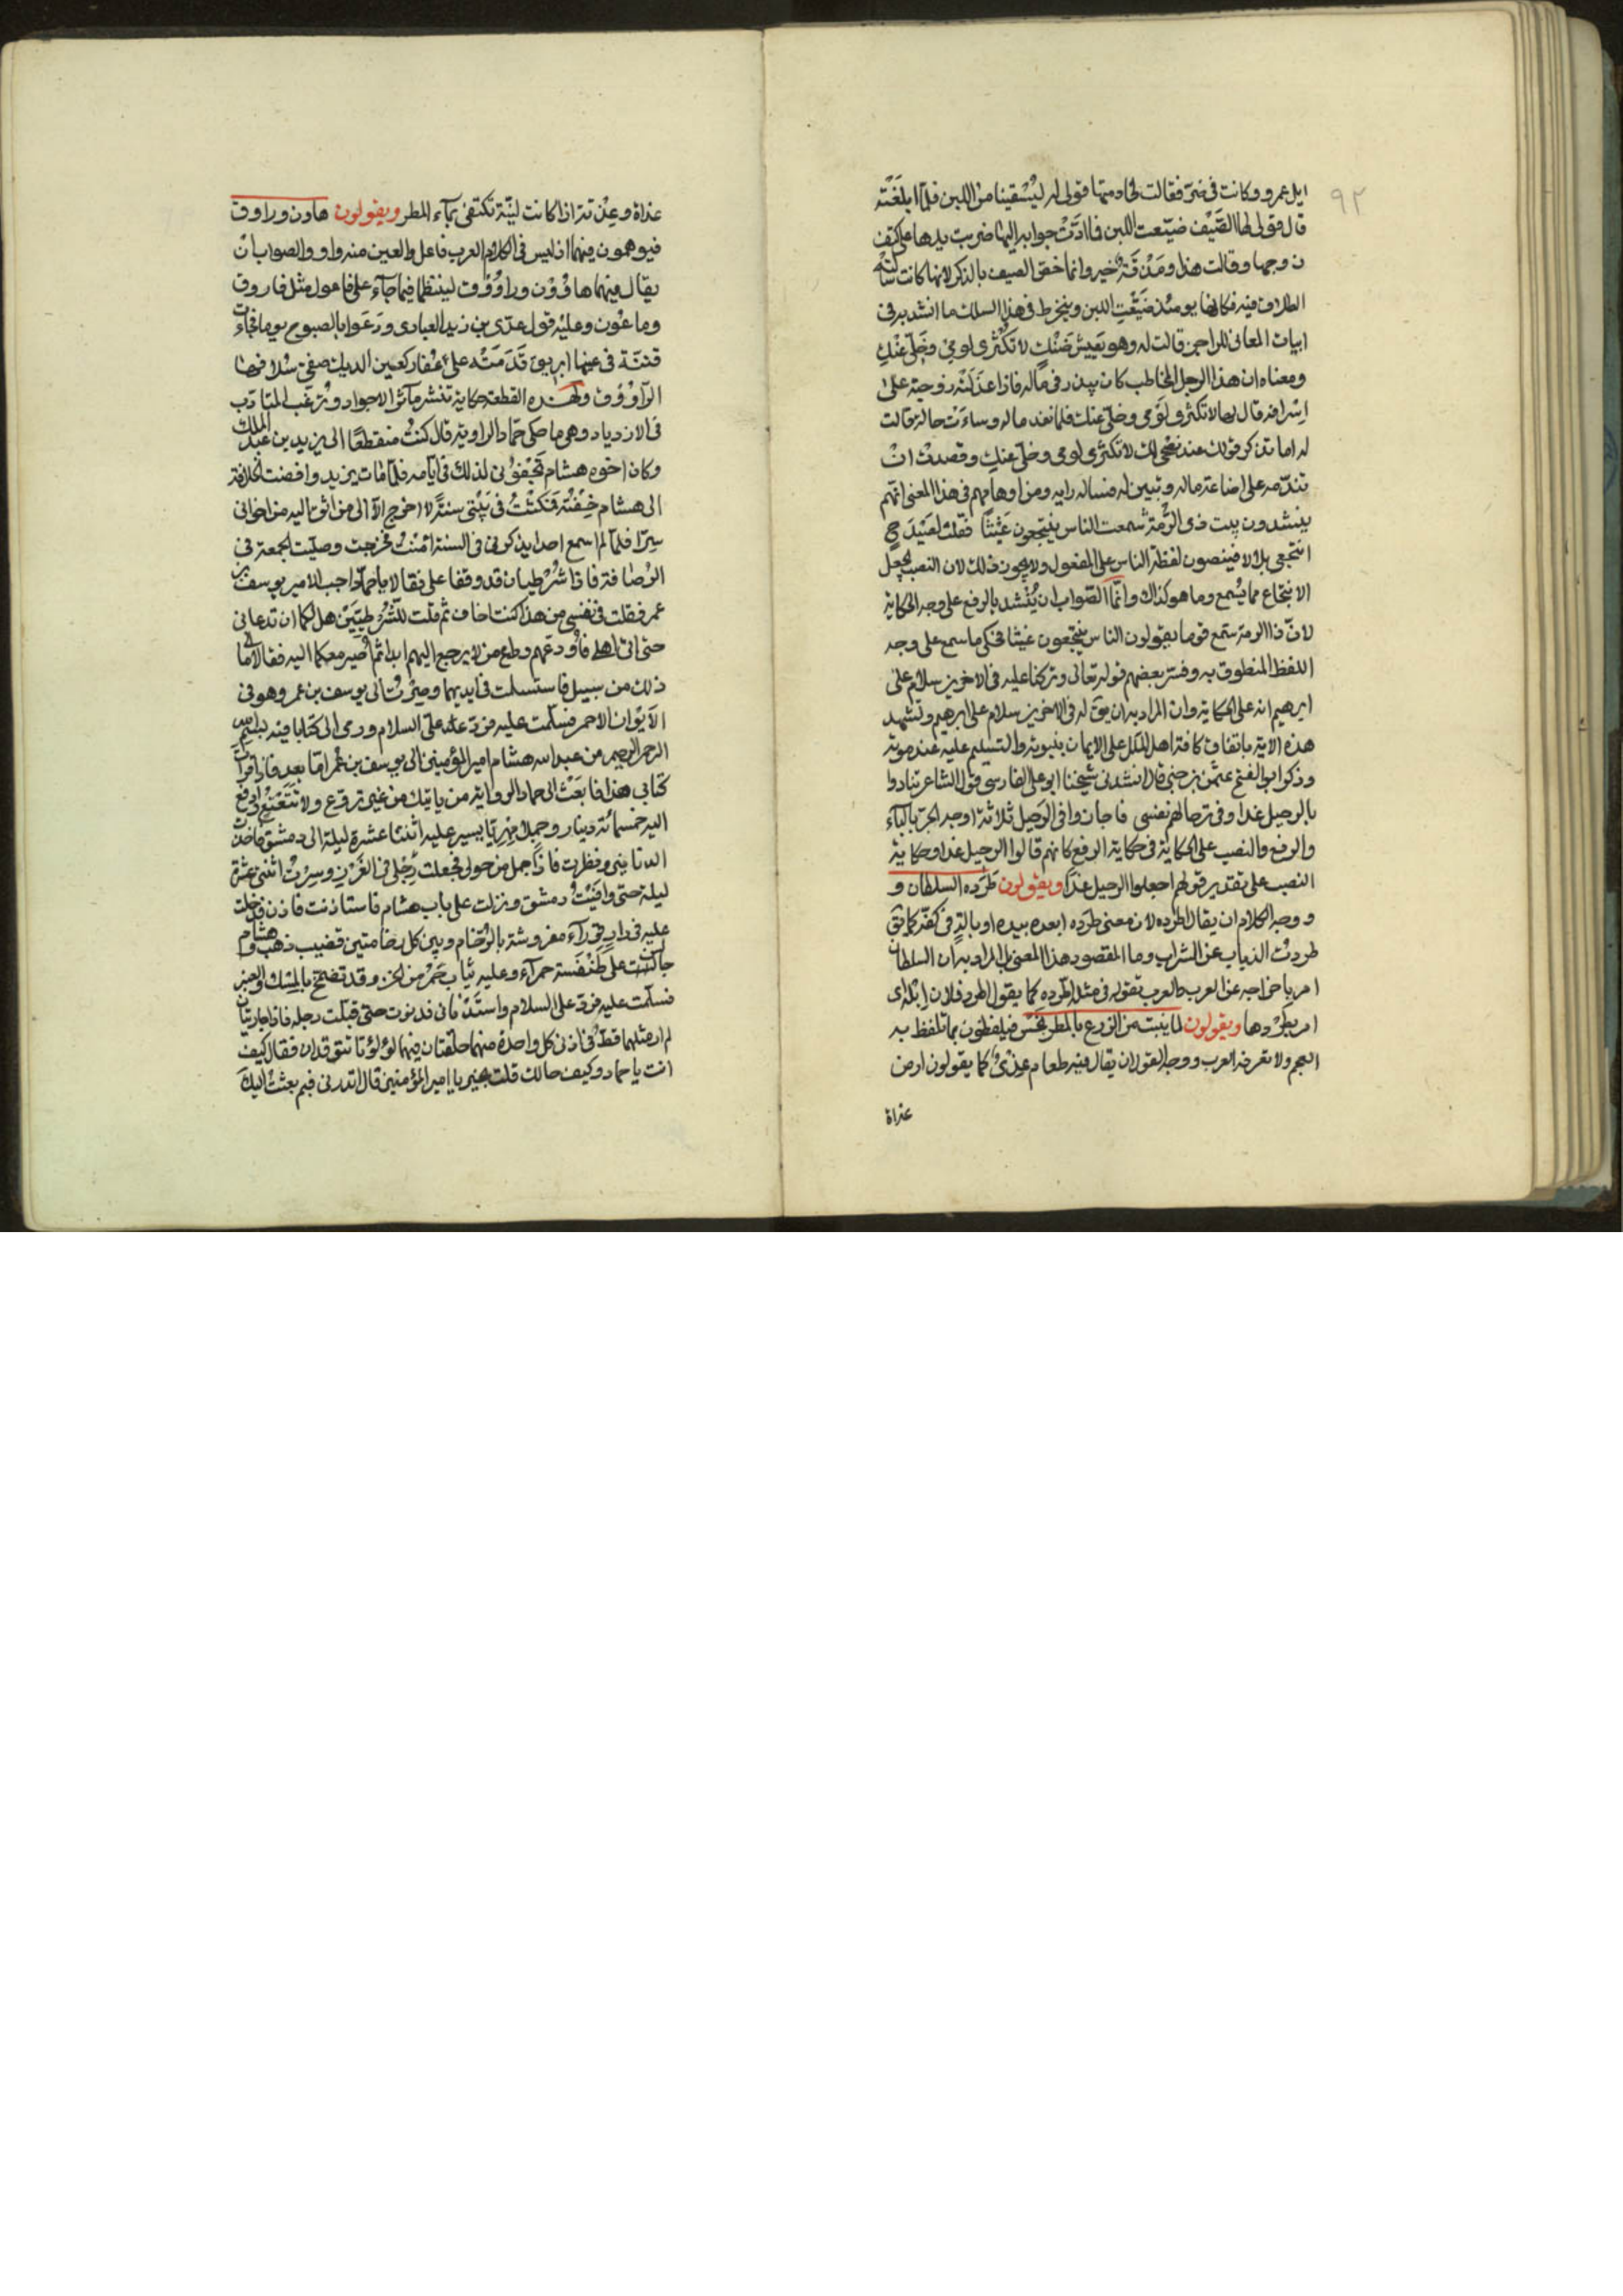 ٩٢
ابل عمرو وكانت في ضر فقالت لخادمتها قولي له ليسقينا من اللبن فلما ابلغته
قال قولي لها الصيف ضيعت اللبن فلما ادت جوابه اليها ضربت يدها على كتف
زوجها وقالت هذا ومذقة خير وانما خص الصيف بالذكر لانها كانت سالته
الطلاق فيه فكانها يومئذ ضيعت اللبن وينخرط في هذا السلك ما انشد به في
ابيات المعاني للراجز قالت له وهو بعيش ضنك لا تكثري لومي وخلي عنك
ومعناه ان هذا الرجل المخاطب كان يبذر في ماله فاذا عذلته زوجته على
اسرافه قال لها لا تكثري لومي وخلي عنك فلما نفد ماله وساءت حاله قالت
له اما تذكر قولك عند نصحي لك لا تكثري لومي وخلي عنك وقصدت ان
تندمه على اضاعة ماله وتبين له فساد رايه ومن اوهامهم في هذا المعنى انهم
ينشدون بيت ذي الرمة سمعت الناس ينتجعون غيثا فقلت لصيدح
انتجعي بلالا فينصبون لفظة الناس على المفعول ولا يجوز ذلك لان النصب يجعل
الانتجاع مما يسمع وما هو كذاك وانما الصواب ان ينشد بالرفع على وجه الحكاية
لان ذا الرمة سمع قوما يقولون الناس ينتجعون غيثا فحكى ما سمع على وجه
اللفظ المنطوق به وفسر بعضهم قوله تعالى وتركنا عليه في الاخرين سلام على
ابرهيم انه على الحكاية وان المراد به ان يق له في الاخرين سلام على ابرهيم وتشهد
هذه الاية باتفاق كافة اهل الملل على الايمان بنبوته والتسليم عليه عند موته
وذكر ابو الفتح عثمن بن جني قال انشدني شيخنا ابو علي الفارسي قول الشاعر تنادوا
بالرحيل غدا وفي ترحالهم نفسي فاجاز في الرحيل ثلاثة اوجه الجر بالباء
والرفع والنصب على الحكاية فحكاية الرفع كانهم قالوا الرحيل غدا وحكاية
النصب على تقدير قولهم اجعلوا الرحيل غدا ويقولون طرده السلطان و
ووجه الكلام ان يقال اطرده لان معنى طرده ابعده بيده او بالة في كفه كما يق
طردت الذباب عن الشراب وما المقصود هذا المعنى بل المراد به ان السلطان
امر باخراجه عن العرب والعرب تقوله في مثله اطرده كما يقول اطرد فلان ابله اي
امر بطردها ويقولون لما ينبت من الزرع بالمطر بخس فيلفظون بما تلفظ به
العجم ولا تعرفه العرب ووجه القول ان يقال فيه طعام عذي كما يقولون ارض
عذاة
عذاة وعذية اذا كانت لينة تكتفي بماء المطر ويقولون هاون وراوق
فيوهمون فيهما اذ ليس في الكلام العرب فاعل والعين منه واو والصواب ان
يقال فيهما هاوون وراووق لينتظما فيما جاء على فاعول مثل فاروق
وماعون وعليه قول عدي بن زيد العبادي ودعوا بالصبوح يوما فجاءت
قينة في يمينها ابريق قدمته على عقار كعين الديك صفى سلافها
الراووق ولهذه القطعة حكاية تنشر مآثر الاجواد وترغب المتادب
في الازدياد وهي ما حكى حماد الراوية قال كنت منقطعا الى يزيد بن عبد الملك
وكان اخوه هشام يجفوني لذلك في ايامه فلما مات يزيد وافضت الخلافة
الى هشام خفته فمكثت في بيتي سنة لا اخرج الا الى من اثق اليه من اخواني
سرا فلما لم اسمع احدا يذكرني في السنة امنت فخرجت وصليت الجمعة في
الرصافة فاذا شرطيان قد وقفا علي فقالا يا حماد اجب الامير يوسف بن
عمر فقلت في نفسي من هذا كنت اخاف ثم قلت للشرطيين هل لكما ان تدعاني
حتى اتي اهلي فاودعهم وداع من لا يرجع اليهم ابدا ثم اصير معكما اليه فقالا ما الى
ذلك من سبيل فاستسلمت في ايديهما وصرت الى يوسف بن عمر وهو في
الايوان الاحمر فسلمت عليه فرد علي السلام ورمى الي كتابا فيه بسم الله
الرحمن الرحيم من عبد الله هشام امير المؤمنين الى يوسف بن عمر اما بعد فاذا قرات
كتابي هذا فابعث الى حماد الراوية من ياتيك من غير تروع ولا تتعتع وادفع
اليه خمسمائة دينار وجملا مهريا يسير عليه اثنتا عشرة ليلة الى دمشق فاخذت
الدنانير ونظرت فاذا جمل مرحول فجعلت رجلي في الغرز وسرت اثنتي عشرة
ليلة حتى وافيت دمشق ونزلت على باب هشام فاستاذنت فاذن فدخلت
عليه في دار قوراء مفروشة بالرخام وبين كل رخامتين قضيب ذهب وهشام
جالس على طنفسة حمراء وعليه ثياب حمر من الخز وقد تضمخ بالمسك والعنبر
فسلمت عليه فرد علي السلام واستدناني فدنوت حتى قبلت رجله فاذا جاريتان
لم ار مثلهما قط في اذني كل واحدة منهما حلقتان فيهما لؤلؤتان تتوقدان فقال كيف
انت يا حماد وكيف حالك قلت بخير يا امير المؤمنين قال اتدري فيم بعثت اليك